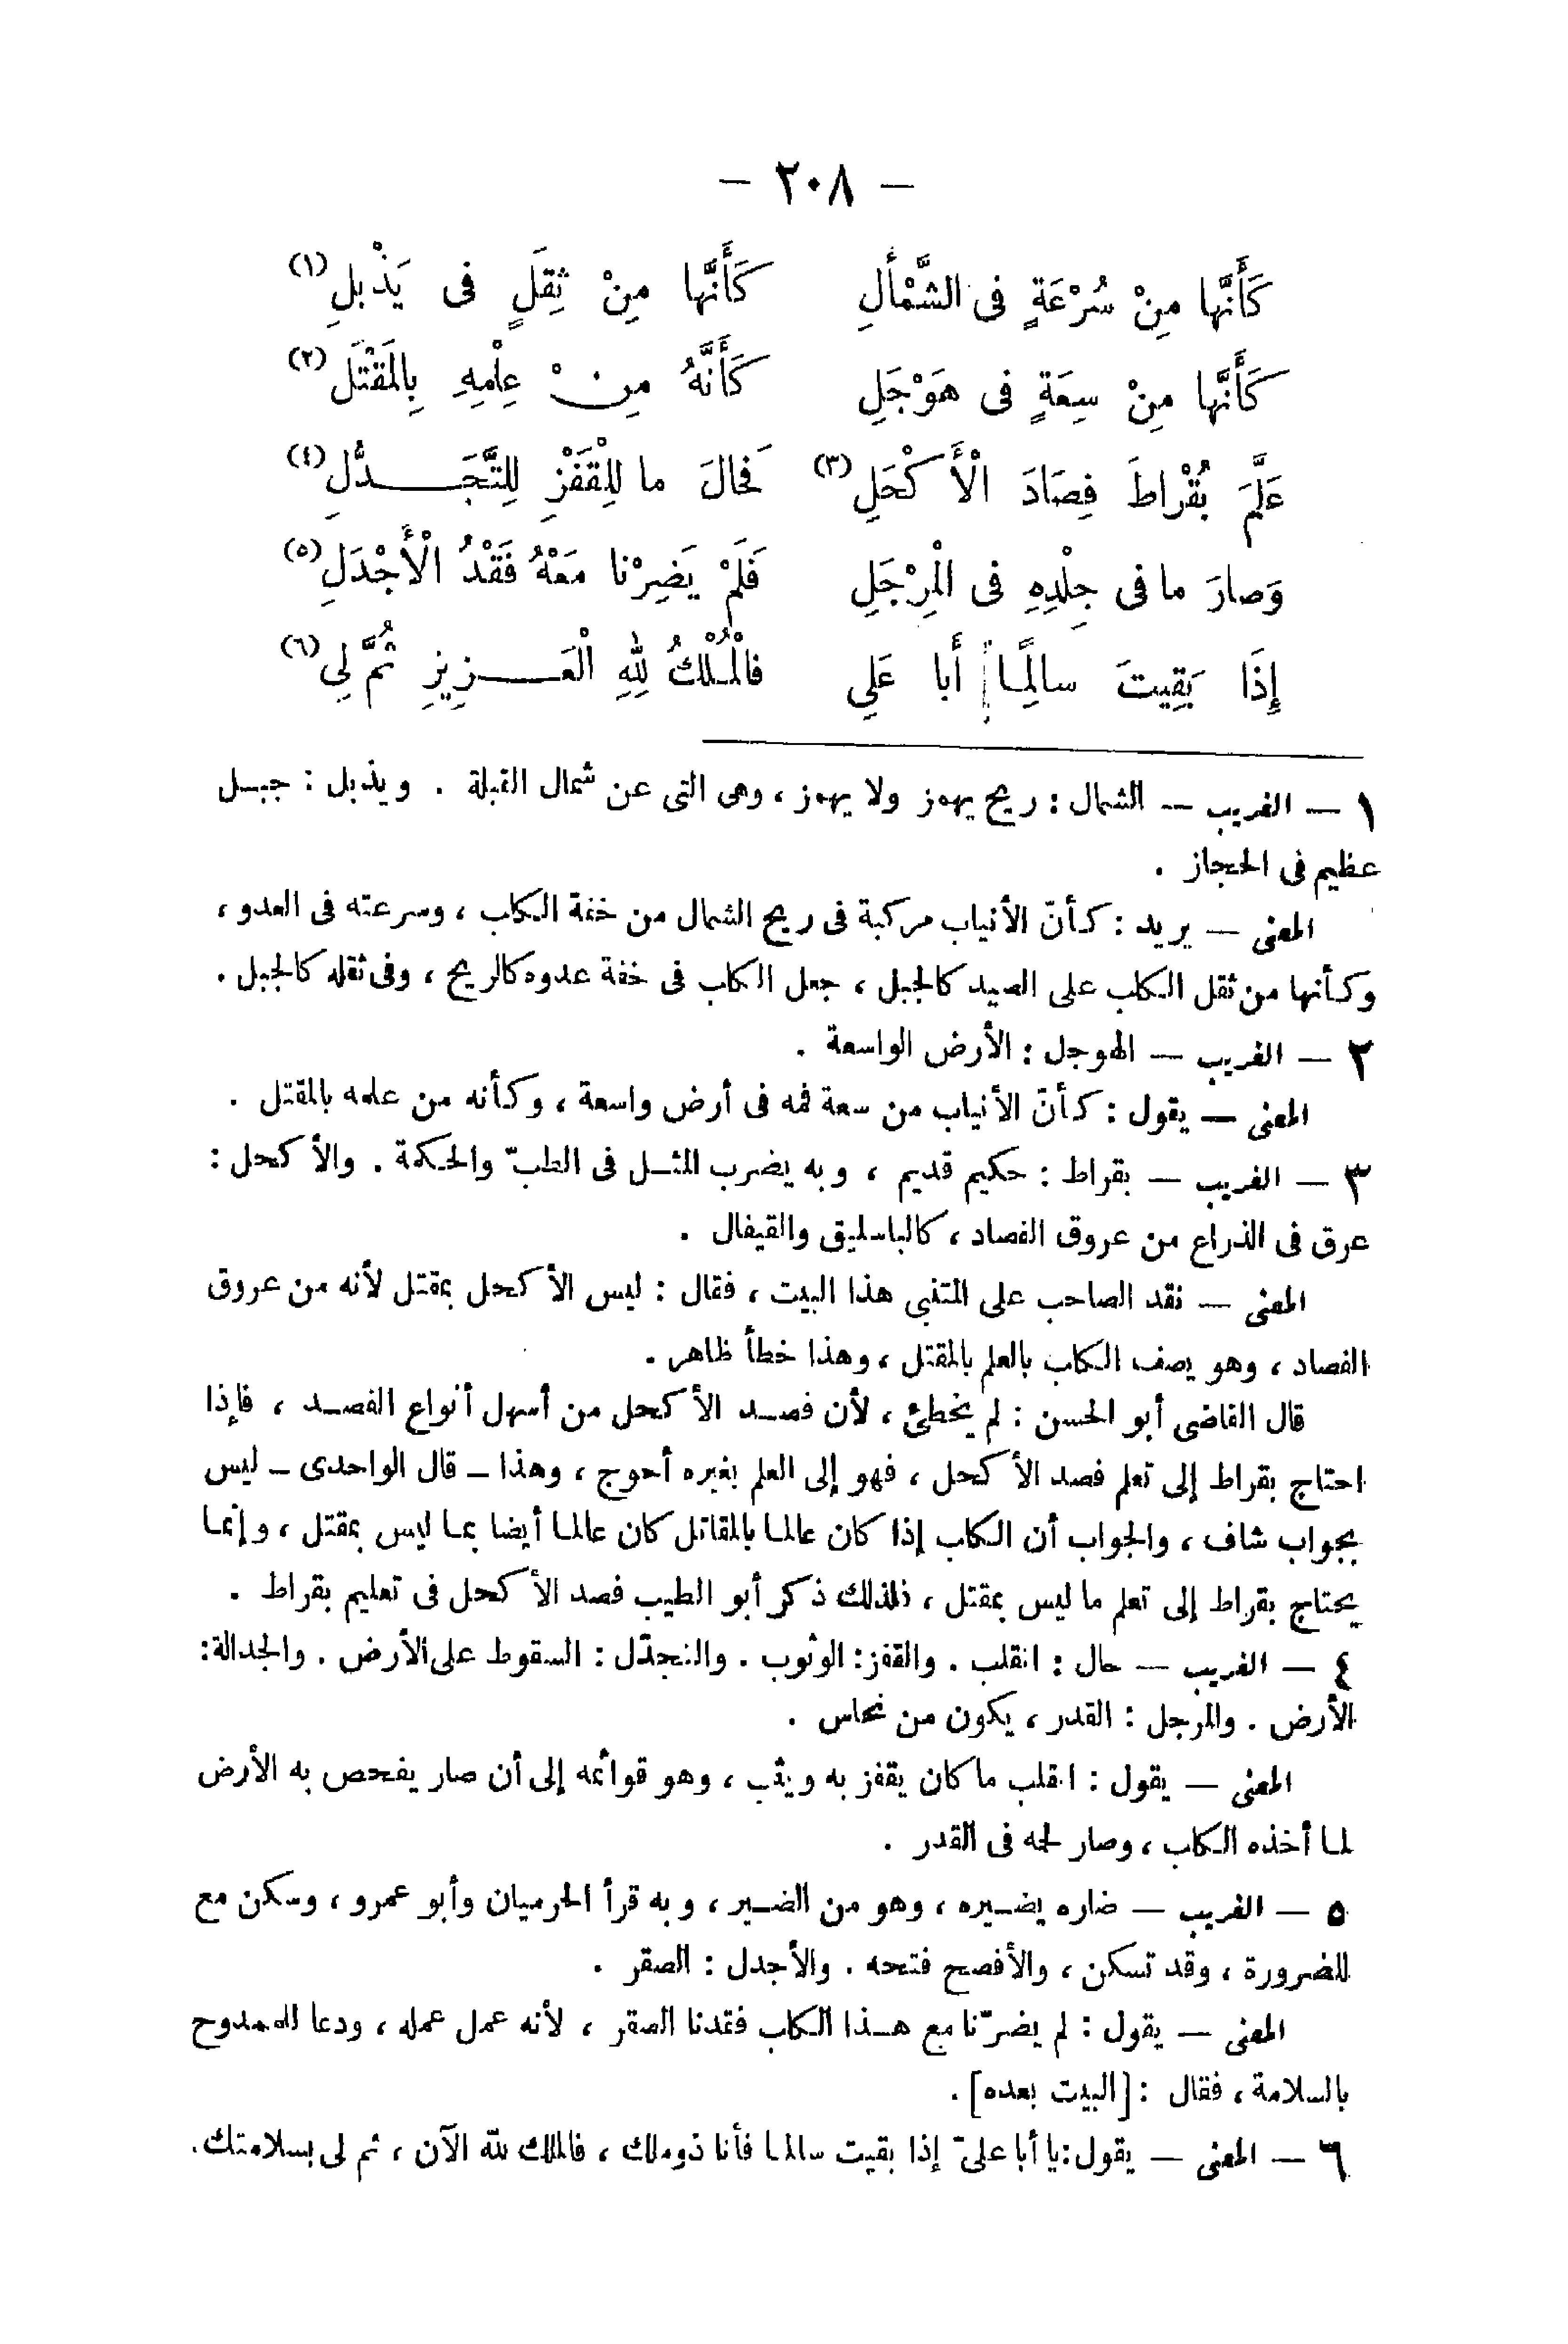 — ٢٠٨ —
كَأَنَّها مِنْ سُرْعَةٍ فى الشَّمْأَلِ كَأَنَّها مِنْ ثِقَلٍ فى يَذْبُلِ (١)
كَأَنَّها مِنْ سِعَةٍ فى هَوْجَلِ كَأَنَّهُ مِنْ عِلْمِهِ بِالمَقْتَلِ (٢)
عَلَّمَ بُقْراطَ فِصَادَ الْأَكْحَلِ (٣) فَحالَ ما لِلْقَفْزِ لِلتَّجَدُّلِ (٤)
وَصارَ ما فى جِلْدِهِ فى الْمِرْجَلِ فَلَمْ يَضِرْنا مَعْهُ فَقْدُ الْأَجْدَلِ (٥)
إِذَا بَقِيتَ سالِمًا أَبا عَلِى فالْمُلْكُ لِلهِ الْعَزِيزِ ثُمَّ لِى (٦)
١ — الغريب — الشمال : ريح يهمز ولا يهمز ، وهى التى عن شمال القبلة . ويذبل : جبل
عظيم فى الحجاز .
المعنى — يريد : كأنّ الأنياب مركبة فى ريح الشمال من خفة الكلب ، وسرعته فى العدو ،
وكأنها من ثقل الكلب على الصيد كالجبل ، جعل الكلب فى خفة عدوه كالريح ، وفى ثقله كالجبل .
٢ — الغريب — الهوجل : الأرض الواسعة .
المعنى — يقول : كأنّ الأنياب من سعة فمه فى أرض واسعة ، وكأنه من علمه بالمقتل .
٣ — الغريب — بقراط : حكيم قديم ، وبه يضرب المثل فى الطبّ والحكمة . والأكحل :
عرق فى الذراع من عروق الفصاد ، كالباسليق والقيفال .
المعنى — نقد الصاحب على المتنبى هذا البيت ، فقال : ليس الأكحل بمقتل لأنه من عروق
الفصاد ، وهو يصف الكلب بالعلم بالمقتل ، وهذا خطأ ظاهر .
قال القاضى أبو الحسن : لم يخطئ ، لأن فصد الأكحل من أسهل أنواع الفصد ، فإذا
احتاج بقراط إلى تعلم فصد الأكحل ، فهو إلى العلم بغيره أحوج ، وهذا – قال الواحدى – ليس
بجواب شاف ، والجواب أن الكلب إذا كان عالما بالمقاتل كان عالما أيضا بما ليس بمقتل ، وإنما
يحتاج بقراط إلى تعلم ما ليس بمقتل ، فلذلك ذكر أبو الطيب فصد الأكحل فى تعليم بقراط .
٤ — الغريب — حال : انقلب . والقفز : الوثوب . والتجدّل : السقوط على الأرض . والجدالة :
الأرض . والمرجل : القدر ، يكون من نحاس .
المعنى — يقول : انقلب ما كان يقفز به ويثب ، وهو قوائمه إلى أن صار يفحص به الأرض
لما أخذه الكلب ، وصار لحمه فى القدر .
٥ — الغريب — ضاره يضيره ، وهو من الضير ، وبه قرأ الحرميان وأبو عمرو ، وسكن مع
للضرورة ، وقد تسكن ، والأفصح فتحه . والأجدل : الصقر .
المعنى — يقول : لم يضرّنا مع هذا الكلب فقدنا الصقر ، لأنه عمل عمله ، ودعا للممدوح
بالسلامة ، فقال : [البيت بعده] .
٦ — المعنى — يقول : يا أبا علىّ إذا بقيت سالما فأنا ذو ملك ، فالملك لله الآن ، ثم لى بسلامتك .